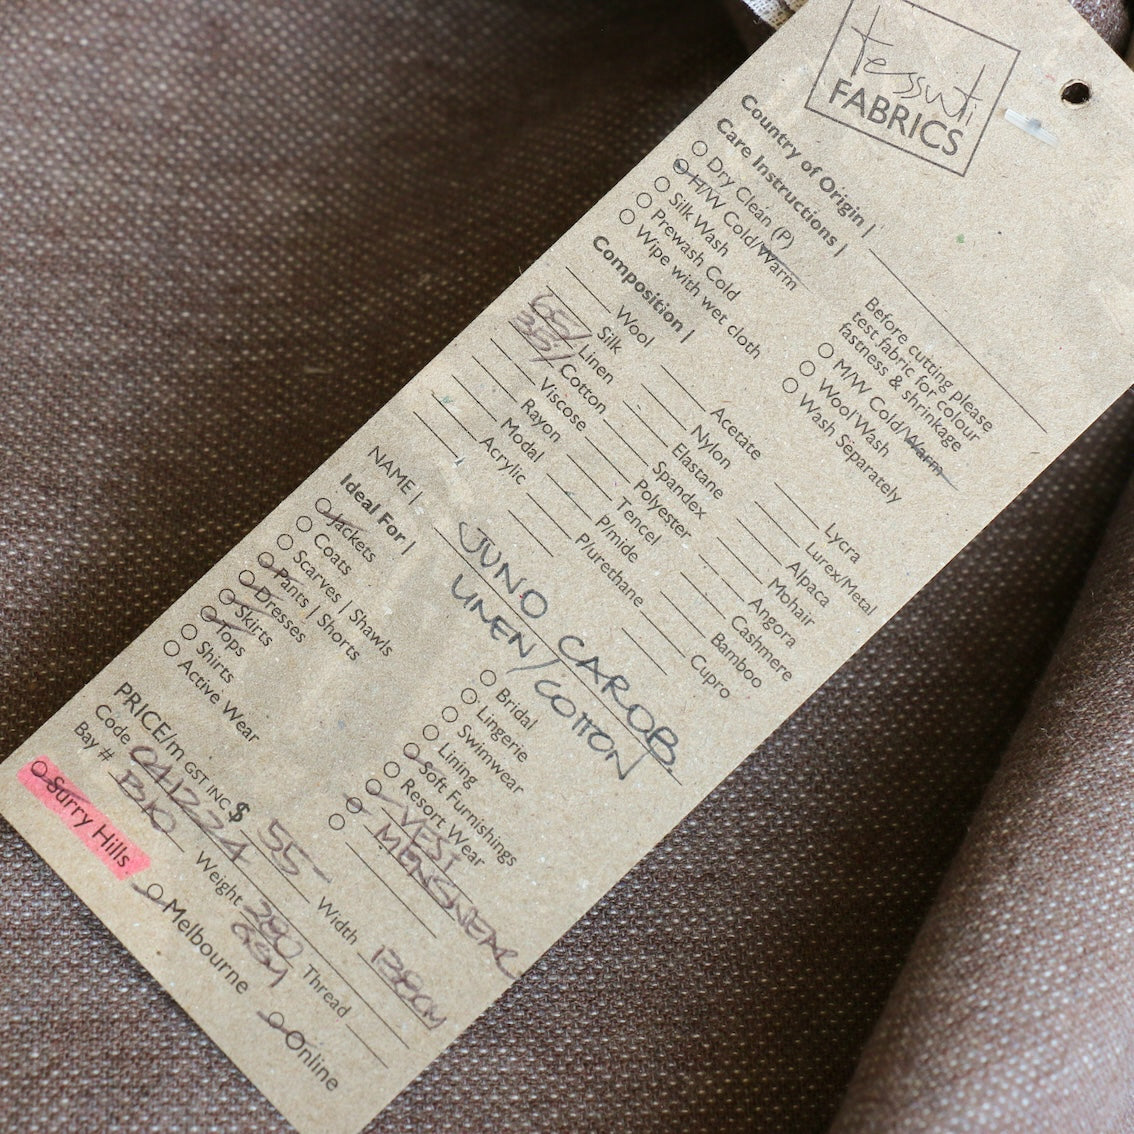 tessuti
FABRICS
Country of Origin |
Care Instructions |
Dry Clean (P)
H/W Cold/Warm
Silk Wash
Prewash Cold
Wipe with wet cloth
Before cutting please
test fabric for colour
fastness & shrinkage
M/W Cold/Warm
Wool Wash
Wash Separately
Composition |
Wool
Silk
65/ Linen
35/ Cotton
Viscose
Rayon
Modal
Acrylic
Acetate
Nylon
Elastane
Spandex
Polyester
Tencel
P/mide
P/urethane
Lycra
Lurex/Metal
Alpaca
Mohair
Angora
Cashmere
Bamboo
Cupro
NAME | JUNO CAROB
LINEN/COTTON
Ideal For |
Jackets
Coats
Scarves | Shawls
Pants | Shorts
Dresses
Skirts
Tops
Shirts
Active Wear
Bridal
Lingerie
Swimwear
Lining
Soft Furnishings
Resort Wear
VEST
MENSWEAR
PRICE/m GST INC $ 55- Width 138CM
Code 041224 Weight 280 GSM Thread
Bay # B10
Surry Hills Melbourne Online